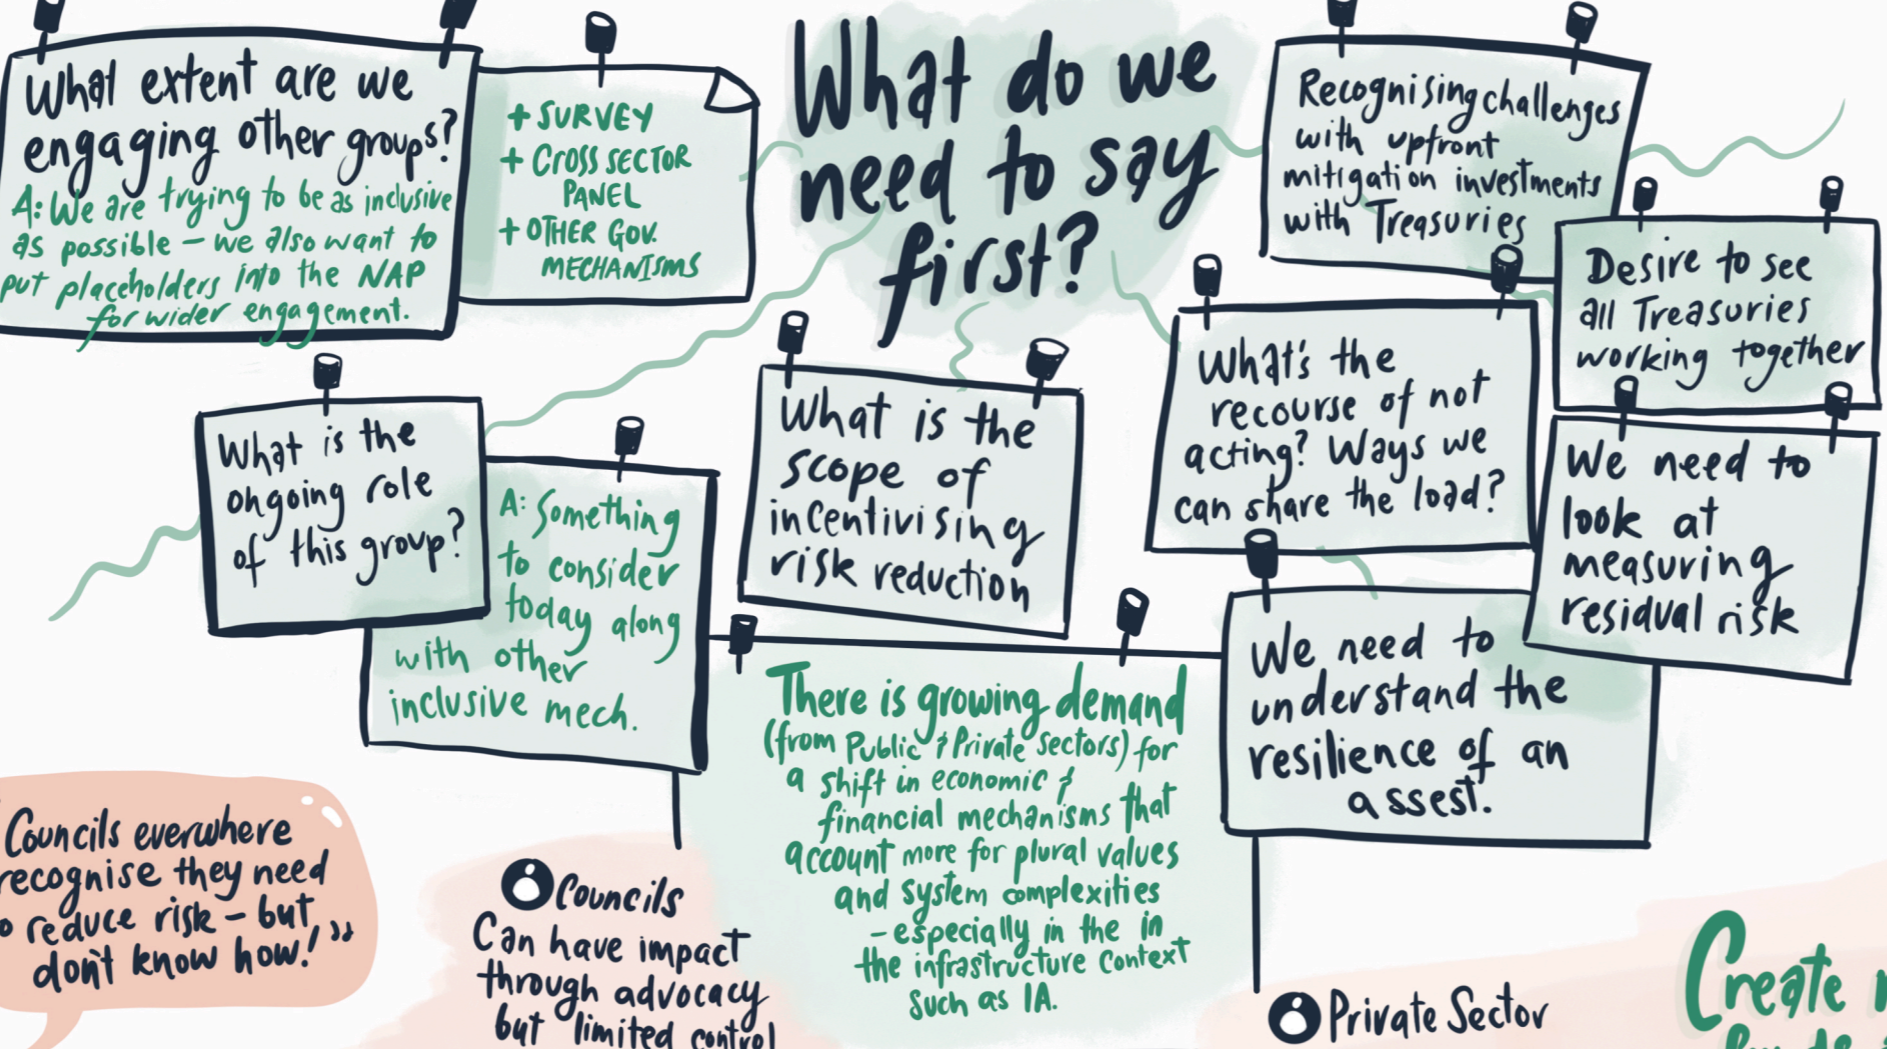 What extent are we
engaging other groups?
A: We are trying to be as inclusive
as possible – we also want to
put placeholders into the NAP
for wider engagement.
+ SURVEY
+ CROSS SECTOR
PANEL
+ OTHER GOV.
MECHANISMS
What do we
need to say
first?
Recognising challenges
with upfront
mitigation investments
with Treasuries
Desire to see
all Treasuries
working together
What is the
ongoing role
of this group?
A: Something
to consider
today along
with other
inclusive mech.
What is the
scope of
incentivising
risk reduction
What's the
recourse of not
acting? Ways we
can share the load?
We need to
look at
measuring
residual risk
We need to
understand the
resilience of an
assest.
There is growing demand
(from Public & Private Sectors) for
a shift in economic &
financial mechanisms that
account more for plural values
and system complexities
– especially in the in
the infrastructure context
such as IA.
Councils everwhere
recognise they need
to reduce risk – but
don't know how!"
Councils
Can have impact
through advocacy
but limited control
Private Sector
Create